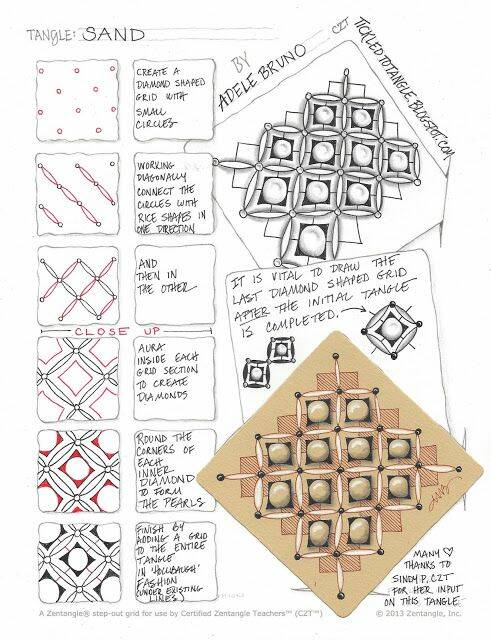 TANGLE: SAND
BY
ADELE BRUNO
CZT
TICKLEDTOTANGLE.BLOGSPOT.COM
CREATE A
DIAMOND SHAPED
GRID WITH
SMALL
CIRCLES
WORKING
DIAGONALLY
CONNECT THE
CIRCLES WITH
RICE SHAPES IN
ONE DIRECTION
AND
THEN IN
THE OTHER
CLOSE UP
AURA
INSIDE EACH
GRID SECTION
TO CREATE
DIAMONDS
ROUND THE
CORNERS OF
EACH
INNER
DIAMOND
TO FORM
THE PEARLS
FINISH BY
ADDING A GRID
TO THE ENTIRE
TANGLE
IN 'HOLLIBAUGH'
FASHION
(UNDER EXISTING
LINES)
IT IS VITAL TO DRAW THE
LAST DIAMOND SHAPED GRID
AFTER THE INITIAL TANGLE
IS COMPLETED.
MANY ♡
THANKS TO
SINDY P., CZT
FOR HER INPUT
ON THIS TANGLE.
A Zentangle® step-out grid for use by Certified Zentangle Teachers™ (CZT™)
© 2013 Zentangle, Inc.